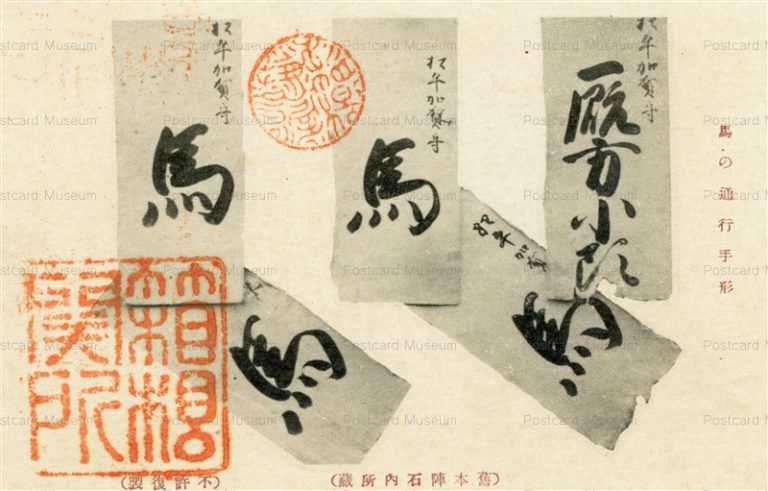 馬の通行手形
松平加賀守
厩方小頭
松平加賀守
馬
松平加賀守
馬
松平加
馬
馬
箱根
関所
(舊本陣石内所蔵)
(不許復製)
Postcard Museum